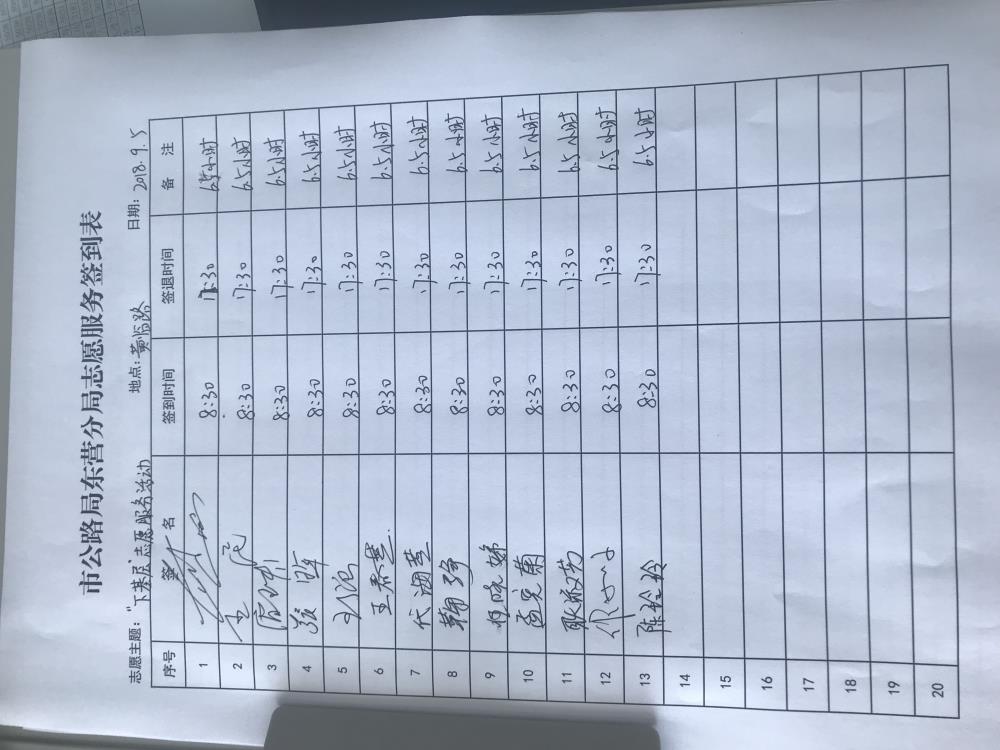 市公路局东营分局志愿服务签到表
志愿主题："下基层"志愿服务活动 地点：黄临路 日期：2018.9.5
序号 签 名 签到时间 签退时间 备 注
1 8:30 17:30 6.5小时
2 8:30 17:30 6.5小时
3 8:30 17:30 6.5小时
4 8:30 17:30 6.5小时
5 8:30 17:30 6.5小时
6 8:30 17:30 6.5小时
7 8:30 17:30 6.5小时
8 8:30 17:30 6.5小时
9 8:30 17:30 6.5小时
10 8:30 17:30 6.5小时
11 8:30 17:30 6.5小时
12 8:30 17:30 6.5小时
13 陈玲玲 8:30 17:30 6.5小时
14
15
16
17
18
19
20